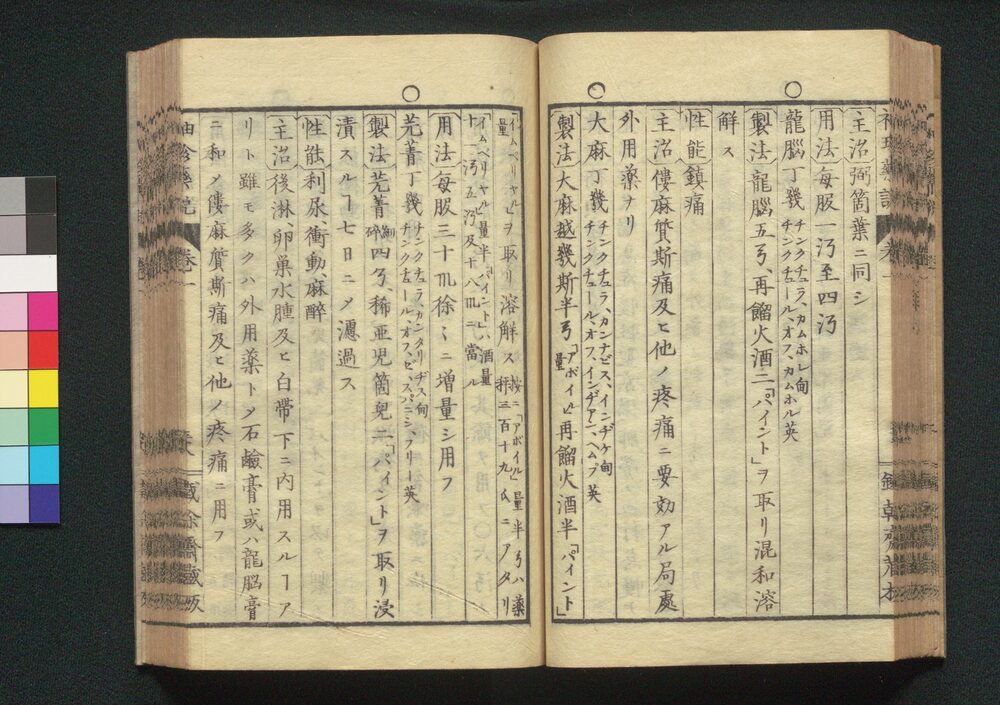 主治 弼箇葉ニ同シ
用法 每服一汚至四汚
龍脳丁幾 チンクチュラ、カムホレ甸 チンクチュール、オフ、カムホル英
製法 龍脳五弓、再餾火酒二「パイント」ヲ取リ混和溶
解ス
性能 鎮痛
主治 僂麻質斯痛及ヒ他ノ疼痛ニ要効アル局處
外用薬ナリ
大麻丁幾 チンクチュラ、カンナビス、インヂケ甸 チンクチュール、オフ、インヂアン、ヘムプ英
製法 大麻越幾斯半弓「アボイル」量 再餾火酒半「パイント」
「イムペリヤル」量ヲ取リ溶解ス 按ニ「アボイル」量半弓ハ薬秤三百十九氏ニアタリ
「イムペリヤル」量半「パイント」ハ酒量十汚五汚及十八㎖ニ當ル
用法 每服三十㎖徐〻ニ増量シ用フ
芫菁丁幾 チンクチュラ、カンタリヂス甸 チンクチュール、オフ、ビ、スパニシ、フリー英
製法 芫菁細碎四弓、稀亜児箇児二「パイント」ヲ取リ浸
漬スルヿ七日ニメ濾過ス
性能 利尿、衝動、麻醉
主治 後淋、卵巣水腫及ヒ白帯下ニ内用スルヿア
リト雖モ多クハ外用薬トメ石鹼膏或ハ龍脳膏
ニ和メ僂麻質斯痛及ヒ他ノ疼痛ニ用フ